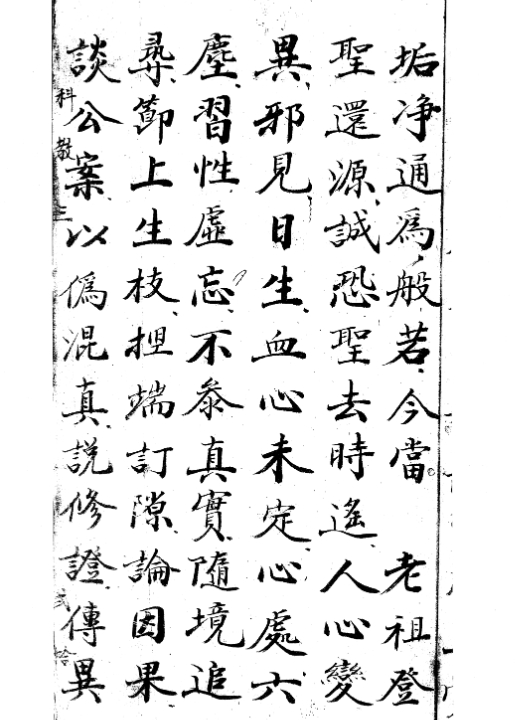 垢净通為般若今當　老祖登
聖還源誠恐聖去時遙人心變
異邪見日生血心未定心處六
塵習性虛忘不叅真實隨境追
尋節上生枝捏端訂隙論因果
談公案以偽混真說修證傳異
科教三　弍拾